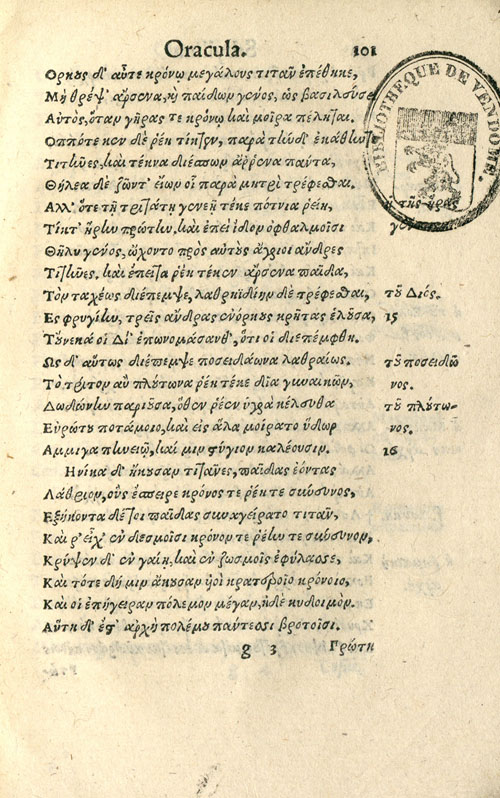 Oracula. 101
Ορκους δ' αὖτε κρόνῳ μεγάλους τιτὰν ἐπέθηκε,
Μὴ θρέψ' ἄρσενα, καὶ παίδων γένος, ὡς βασιλεύσε
Αὐτὸς, ὅταν γῆρας τε κρόνῳ καὶ μοῖρα πέληται.
Οππότε κεν δὲ ῥέη τίκτεν, παρὰ τὴν δ' ἐκάθηντο
Τιτῆνες, καὶ τέκνα διέσπων ἄῤῥενα πάντα,
Θήλεα δὲ ζῶντ' εἴων οἱ παρὰ μητρὶ τρέφεσθαι.
Αλλ' ὅτε τῇ τριτάτῃ γενεῇ τέκε πότνια ῥείη, ἡ τῆς ἥρας
Τίκτ' ἥρην πρώτην, καὶ ἐπεὶ ἴδον ὀφθαλμοῖσι γέννησις
Θῆλυ γένος, ᾤχοντο πρὸς αὑτοὺς ἄγριοι ἄνδρες
Τιτῆνες, καὶ ἔπειτα ῥέη τέκεν ἄρσενα παῖδα,
Τὸν ταχέως διέπεμψε, λαθρηϊδίην δὲ τρέφεσθαι, τοῦ Διός.
Ες φρυγίην, τρεῖς ἄνδρας ἐνόρκους κρῆτας ἑλοῦσα, 15
Τοὔνεκά οἱ Δί' ἐπωνομάσανθ', ὅτι οἱ διεπέμφθη.
Ως δ' αὔτως διέπεμψε ποσειδάωνα λαθραίως. τοῦ ποσειδῶ
Τὸ τρίτον αὖ πλούτωνα ῥέη τέκε δῖα γυναικῶν, νος.
Δωδώνην παριοῦσα, ὅθεν ῥέεν ὑγρὰ κέλευθα τοῦ πλύτω-
Εὐρώτου ποτάμοιο, καὶ εἰς ἅλα μύρατο ὕδωρ νος.
Αμμιγα πηνειῷ, καί μιν στύγιον καλέουσιν. 16
Ηνίκα δ' ἤκουσαν τιτᾶνες, παῖδας ἐόντας
Λάθριον, οὓς ἔσπειρε κρόνος τε ῥέη τε σύνευνος,
Εξήκοντα δέ τοι παῖδας συναγείρατο τιτὰν,
Καί ῥ' εἶχ' ἐν δεσμοῖσι κρόνον τε ῥέην τε σύνευνον,
Κρύψεν δ' ἐν γαίῃ, καὶ ἐν ζωσμοῖς ἐφύλασσε,
Καὶ τότε δή μιν ἄκουσαν υἱοὶ κρατεροῖο κρόνοιο,
Καί οἱ ἐπήγειραν πόλεμον μέγαν, ἠδὲ κυδοιμόν.
Αὕτη δ' ἔστ' ἀρχὴ πολέμου πάντεσσι βροτοῖσι.
g 3 Πρώτη
BIBLIOTHEQUE DE VENDOME.